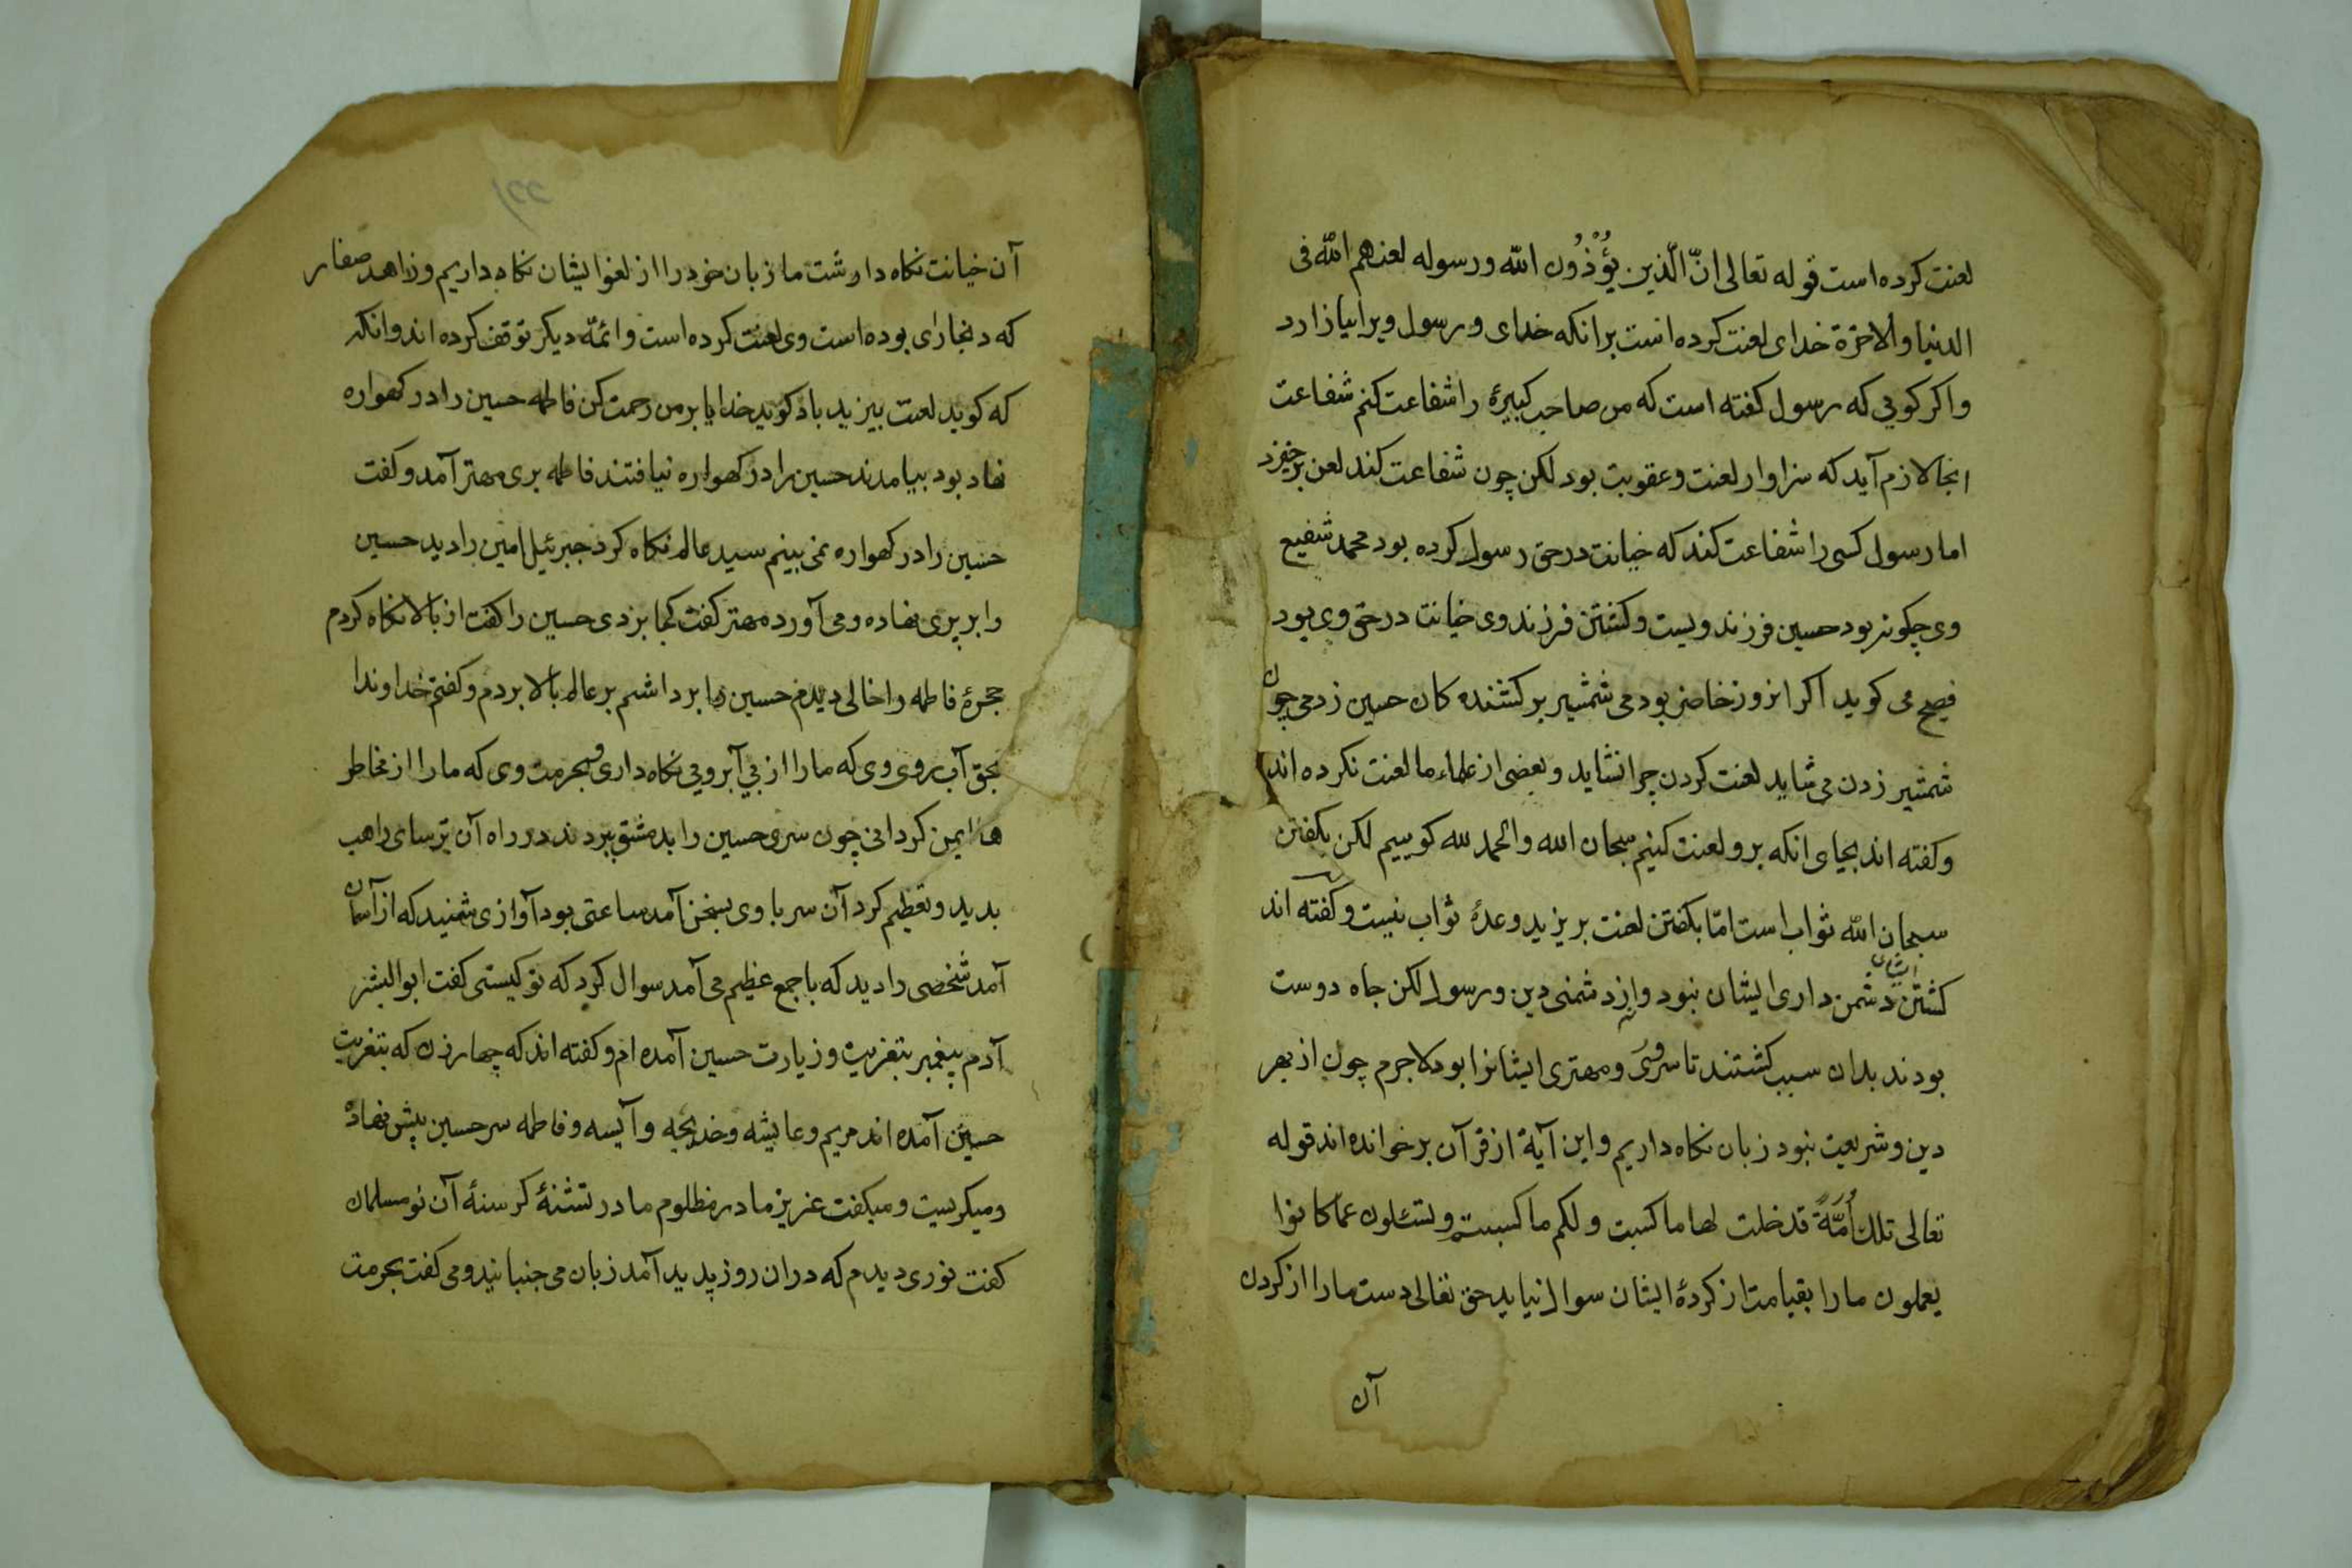 لعنت کرده است قوله تعالی انّ الّذین یؤْذُون الله ورسوله لعنهم الله فی
الدنیا والاخرة خدای لعنت کرده است برانکه خدای و رسول ویرا بیازارد
واکر کویی که رسول کفته است که من صاحب کبیرهٔ را شفاعت کنم شفاعت
انجا لازم آید که سزاوار لعنت وعقوبت بود لکن چون شفاعت کند لعن برخیزد
اما رسول کسی را شفاعت کند که خیانت در حق رسول کرده بود محمد شفیع
وی چکونه بود حسین فرزند ویست و کشتن فرزند وی خیانت در حق وی بود
فصیح می کوید اکر انروز حاضر بودمی شمشیر بر کشنده کان حسین زدمی چون
شمشیر زدن می شاید لعنت کردن چرا نشاید و بعضی از علماء ما لعنت نکرده اند
وکفته اند بجای انکه برو لعنت کنیم سبحان الله والحمد لله کوییم لکن بکفتن
سبحان الله ثواب است امّا بکفتن لعنت بر یزید وعدهٔ ثواب نیست و کفته اند
ایشان
کشتن دشمن داری ایشان نبود و از دشمنی دین و رسول لکن جاه دوست
بودند بدان سبب کشتند تا سروری و مهتری ایشانرا بود لاجرم چون از بهر
دین و شریعت نبود زبان نکاه داریم و این آیة از قرآن برخوانده اند قوله
تعالی تلك أُمَّةً قد خلت لها ما کسبت و لکم ما کسبتم و لا تسئلون عمّا کانوا
یعملون ما را بقیامت از کردهٔ ایشان سوال نیاید حق تعالی دست ما را از کردن
آن
آن خیانت نکاه داشت ما زبان خود را از لغو ایشان نکاه داریم و زاهد صفار
که در بخارای بوده است وی لعنت کرده است و ائمّه دیکر توقف کرده اند وانکه
که کوید لعنت بیزید باد کوید خدایا بر من رحمت کن فاطمه حسین را در کهواره
نهاد بود بیامدند حسین را در کهواره نیافتند فاطمه بری مهتر آمد و کفت
حسین را در کهواره نمی بینم سید عالم نکاه کرد جبرئیل امین را دید حسین
را بر پری نهاده و می آورد مهتر کفت کجا بردی حسین را کفت از بالا نکاه کردم
حجرهٔ فاطمه را خالی دیدم حسین را برداشتم بر عالم بالا بردم و کفتم خداوندا
بحق آب روی وی که ما را از بی آبرویی نکاه داری و بحرمت وی که ما را از مخاطر
ها ایمن کردانی چون سری حسین را بدمشق بردند در راه آن ترسای راهب
بدید و تعظیم کرد آن سر با وی بسخن آمد ساعتی بود آوازی شنید که از آسمان
آمد شخصی را دید که با جمع عظیم می آمد سوال کرد که تو کیستی کفت ابوالبشر
آدم پیغمبر بتعزیت و زیارت حسین آمده ام و کفته اند که چهار زن که بتعزیت
حسین آمده اند مریم و عایشه و خدیجه و آیسه و فاطمه سر حسین پیش نهاده
و میکریست و میکفت عزیز مادر مظلوم مادر تشنهٔ کرسنهٔ آن نو مسلمان
کفت نوری دیدم که دران روز پدید آمد زبان می جنبانید و می کفت بحرمت